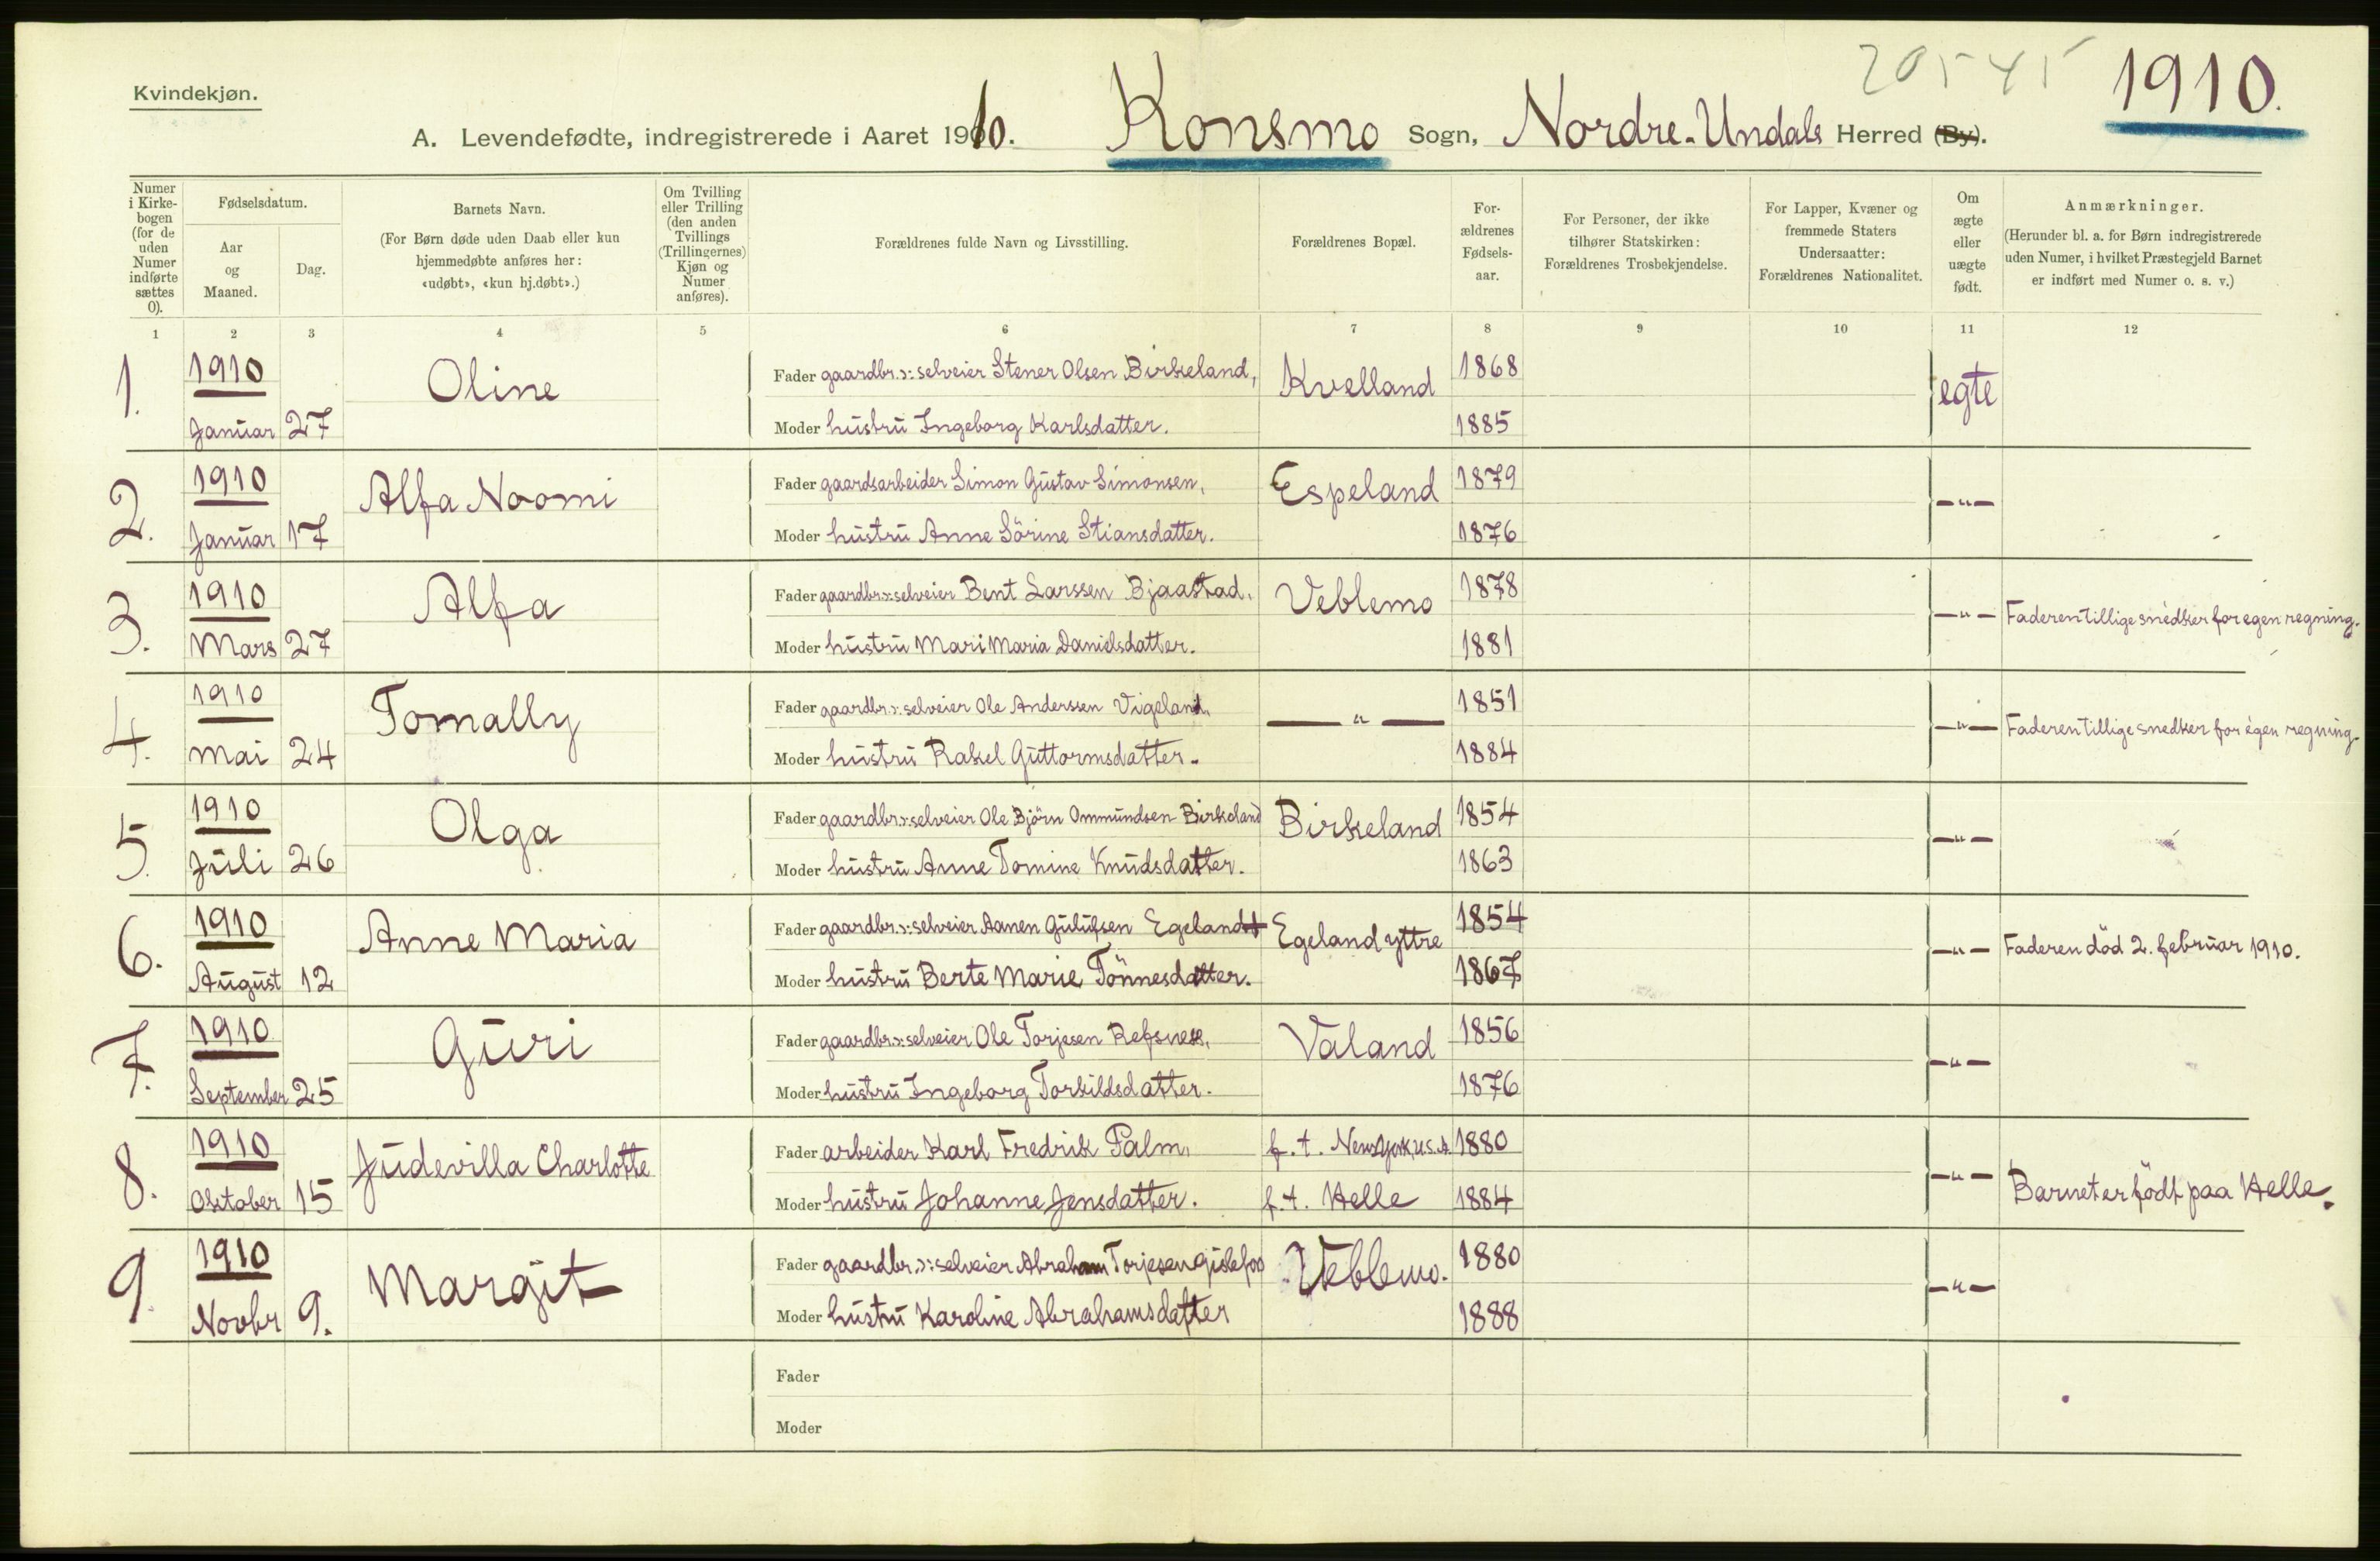 Kvindekjøn.
20545
1910.
A. Levendefødte, indregistrerede i Aaret 1910. Konsmo Sogn, Nordre-Undals Herred (By).
Numer i Kirke-bogen (for de uden Numer indførte sættes 0).
Fødselsdatum.
Aar og Maaned.
Dag.
Barnets Navn.
(For Børn døde uden Daab eller kun hjemmedøbte anføres her: «udøbt», «kun hj.døbt».)
Om Tvilling eller Trilling (den anden Tvillings (Trillingernes) Kjøn og Numer anføres).
Forældrenes fulde Navn og Livsstilling.
Forældrenes Bopæl.
For-ældrenes Fødsels-aar.
For Personer, der ikke tilhører Statskirken: Forældrenes Trosbekjendelse.
For Lapper, Kvæner og fremmede Staters Undersaatter: Forældrenes Nationalitet.
Om ægte eller uægte født.
Anmærkninger.
(Herunder bl. a. for Børn indregistrerede uden Numer, i hvilket Præstegjeld Barnet er indført med Numer o. s. v.)
1 2 3 4 5 6 7 8 9 10 11 12
1. 1910 Januar 27 Oline
Fader gaardbr. ɔ: selveier Stener Olsen Birkeland, Kvelland 1868 egte
Moder hustru Ingeborg Karlsdatter. 1885
2. 1910 Januar 17 Alfa Noomi
Fader gaardsarbeider Simon Gustav Simonsen, Espeland 1879 —"—
Moder hustru Anne Sörine Stiansdatter. 1876
3. 1910 Mars 27 Alfa
Fader gaardbr ɔ: selveier Bent Larssen Bjaastad. Veblemo 1878 —"— Faderen tillige snedker for egen regning.
Moder hustru Mari Maria Danielsdatter. 1881
4. 1910 Mai 24 Tomally
Fader gaardbr. ɔ: selveier Ole Anderssen Vigeland. —"— 1851 —"— Faderen tillige snedker for egen regning.
Moder hustru Rakel Guttormsdatter. 1884
5. 1910 Juli 26 Olga
Fader gaardbr ɔ: selveier Ole Björn Ommundsen Birkeland Birkeland 1854 —"—
Moder hustru Anne Tomine Knudsdatter. 1863
6. 1910 August 12 Anne Maria
Fader gaardbr. ɔ: selveier Aanen Gulufsen Egeland † Egeland yttre 1854 —"— Faderen död 2. februar 1910.
Moder hustru Berte Marie Tönnesdatter. 1867
7. 1910 September 25 Guri
Fader gaardbr ɔ: selveier Ole Torjesen Refsnes, Valand 1856 —"—
Moder hustru Ingeborg Torkildsdatter. 1876
8. 1910 Oktober 15 Judevilla Charlotte
Fader arbeider Karl Fredrik Palm, f. t. New York U.S.A 1880 —"— Barnet er födt paa Helle.
Moder hustru Johanne Jensdatter. f. t. Helle 1884
9. 1910 Novbr 9. Margit
Fader gaardbr. ɔ: selveier Abraham Torjesen Gislefos Veblemo. 1880 —"—
Moder hustru Karoline Abrahamsdatter 1888
Fader
Moder